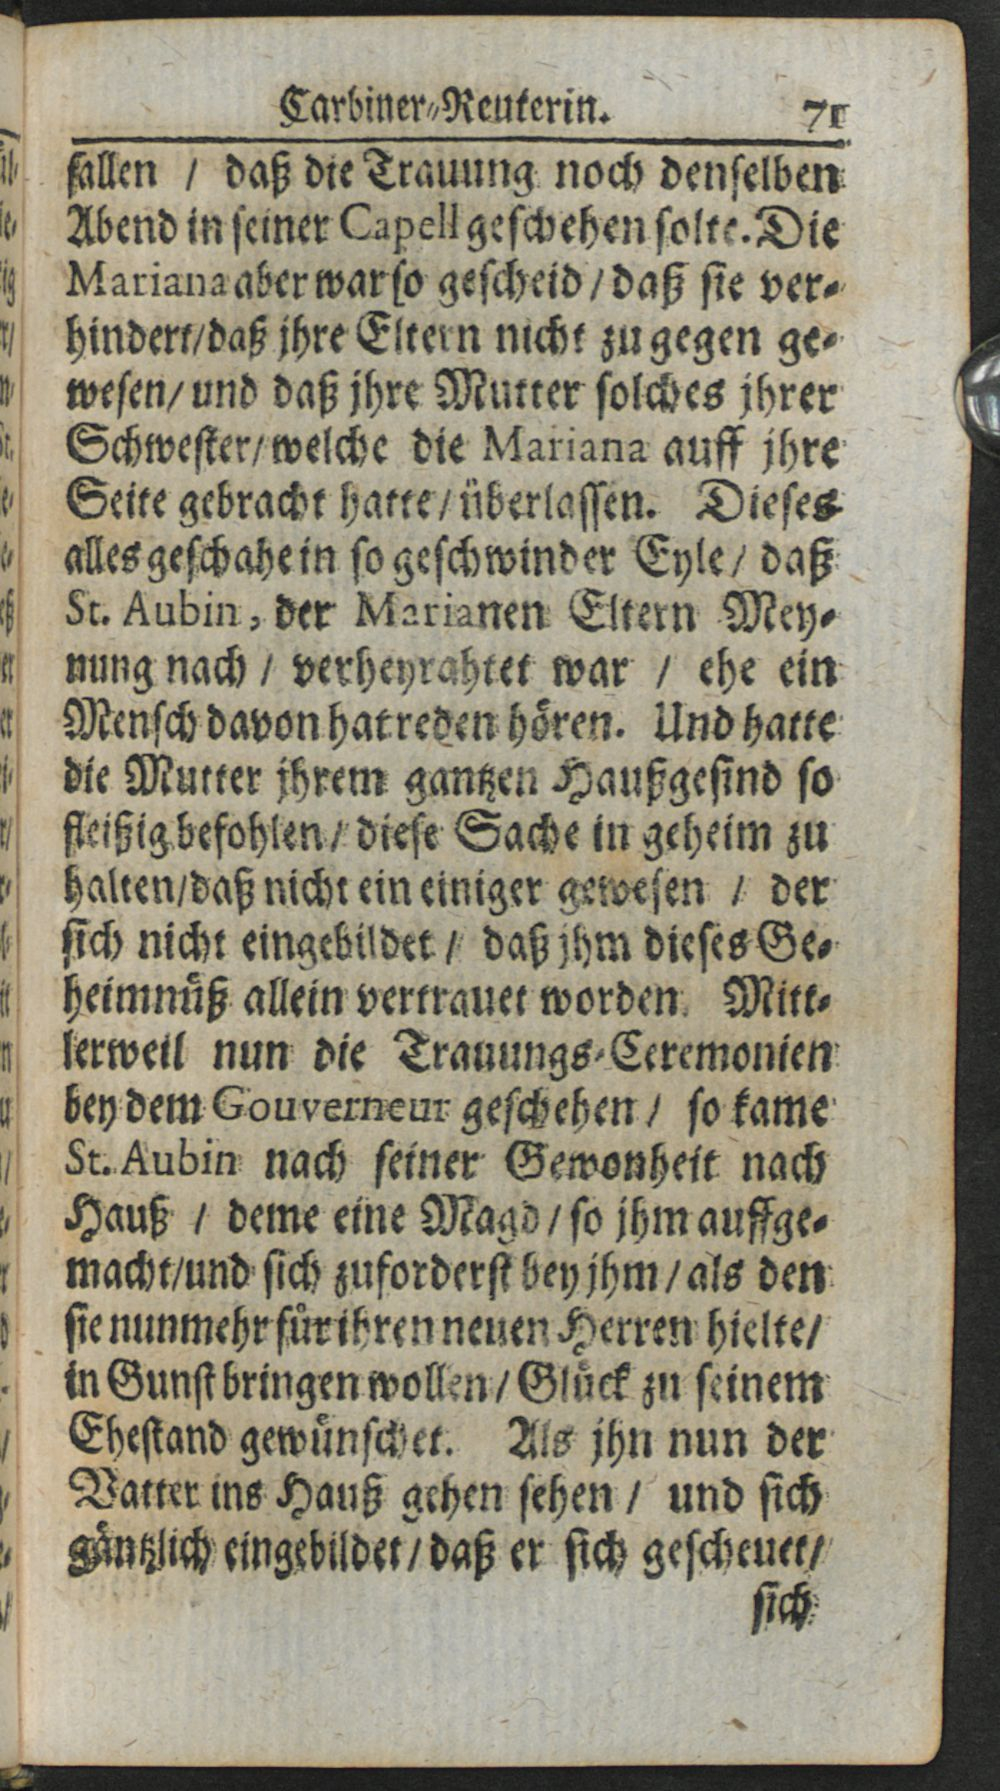 Carbiner-Reuterin. 71
fallen / daß die Trauung noch denselben
Abend in seiner Capell geschehen solte. Die
Mariana aber war so gescheid / daß sie ver-
hindert/daß jhre Eltern nicht zu gegen ge-
wesen/ und daß jhre Mutter solches jhrer
Schwester/welche die Mariana auff jhre
Seite gebracht hatte / überlassen. Dieses
alles geschahe in so geschwinder Eyle / daß
St. Aubin, der Marianen Eltern Mey-
nung nach / verheyrahtet war / ehe ein
Mensch davon hat reden hören. Und hatte
die Mutter jhrem gantzen Haußgesind so
fleißig befohlen / diese Sache in geheim zu
halten/daß nicht ein einiger gewesen / der
sich nicht eingebildet / daß jhm dieses Ge-
heimnüß allein vertrauet worden. Mitt-
lerweil nun die Trauungs-Ceremonien
bey dem Gouverneur geschehen / so kame
St. Aubin nach seiner Gewonheit nach
Hauß / deme eine Magd / so jhm auffge-
macht/und sich zuforderst bey jhm / als den
sie nunmehr für ihren neuen Herren hielte/
in Gunst bringen wollen / Glück zu seinem
Ehestand gewünschet. Als jhn nun der
Vatter ins Hauß gehen sehen / und sich
gäntzlich eingebildet / daß er sich gescheuet/
sich